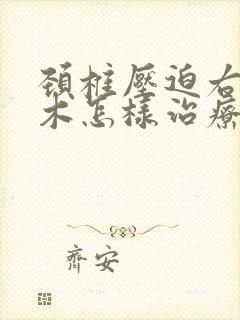 頚椎壓迫右
木怎樣治療
齊安